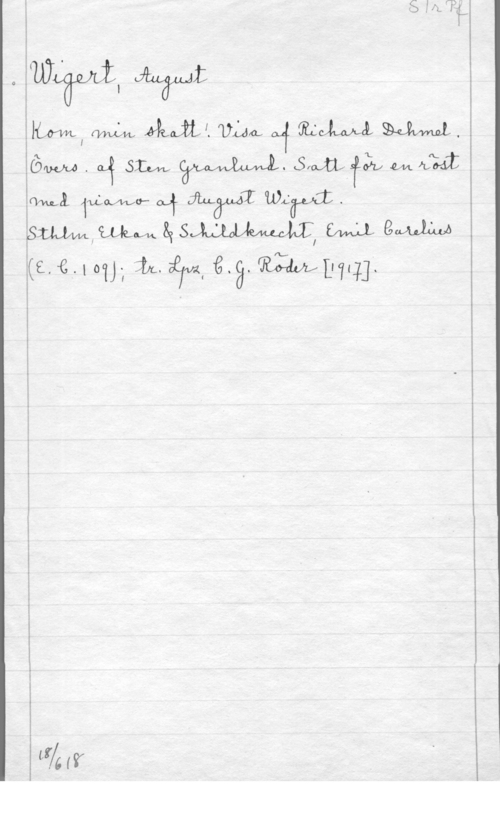 S/r Pf
Wigert, August
Kom, min skatt! Visa af Richard Dehmel.
Övers. af Sten Granlund. Satt för en röst
med piano af August Wigert.
Sthlm, Elkan & Schildknecht, Emil Carelius
(E. C. 109); tr. Lpz, C. G. Röder [1917].
18/6 18